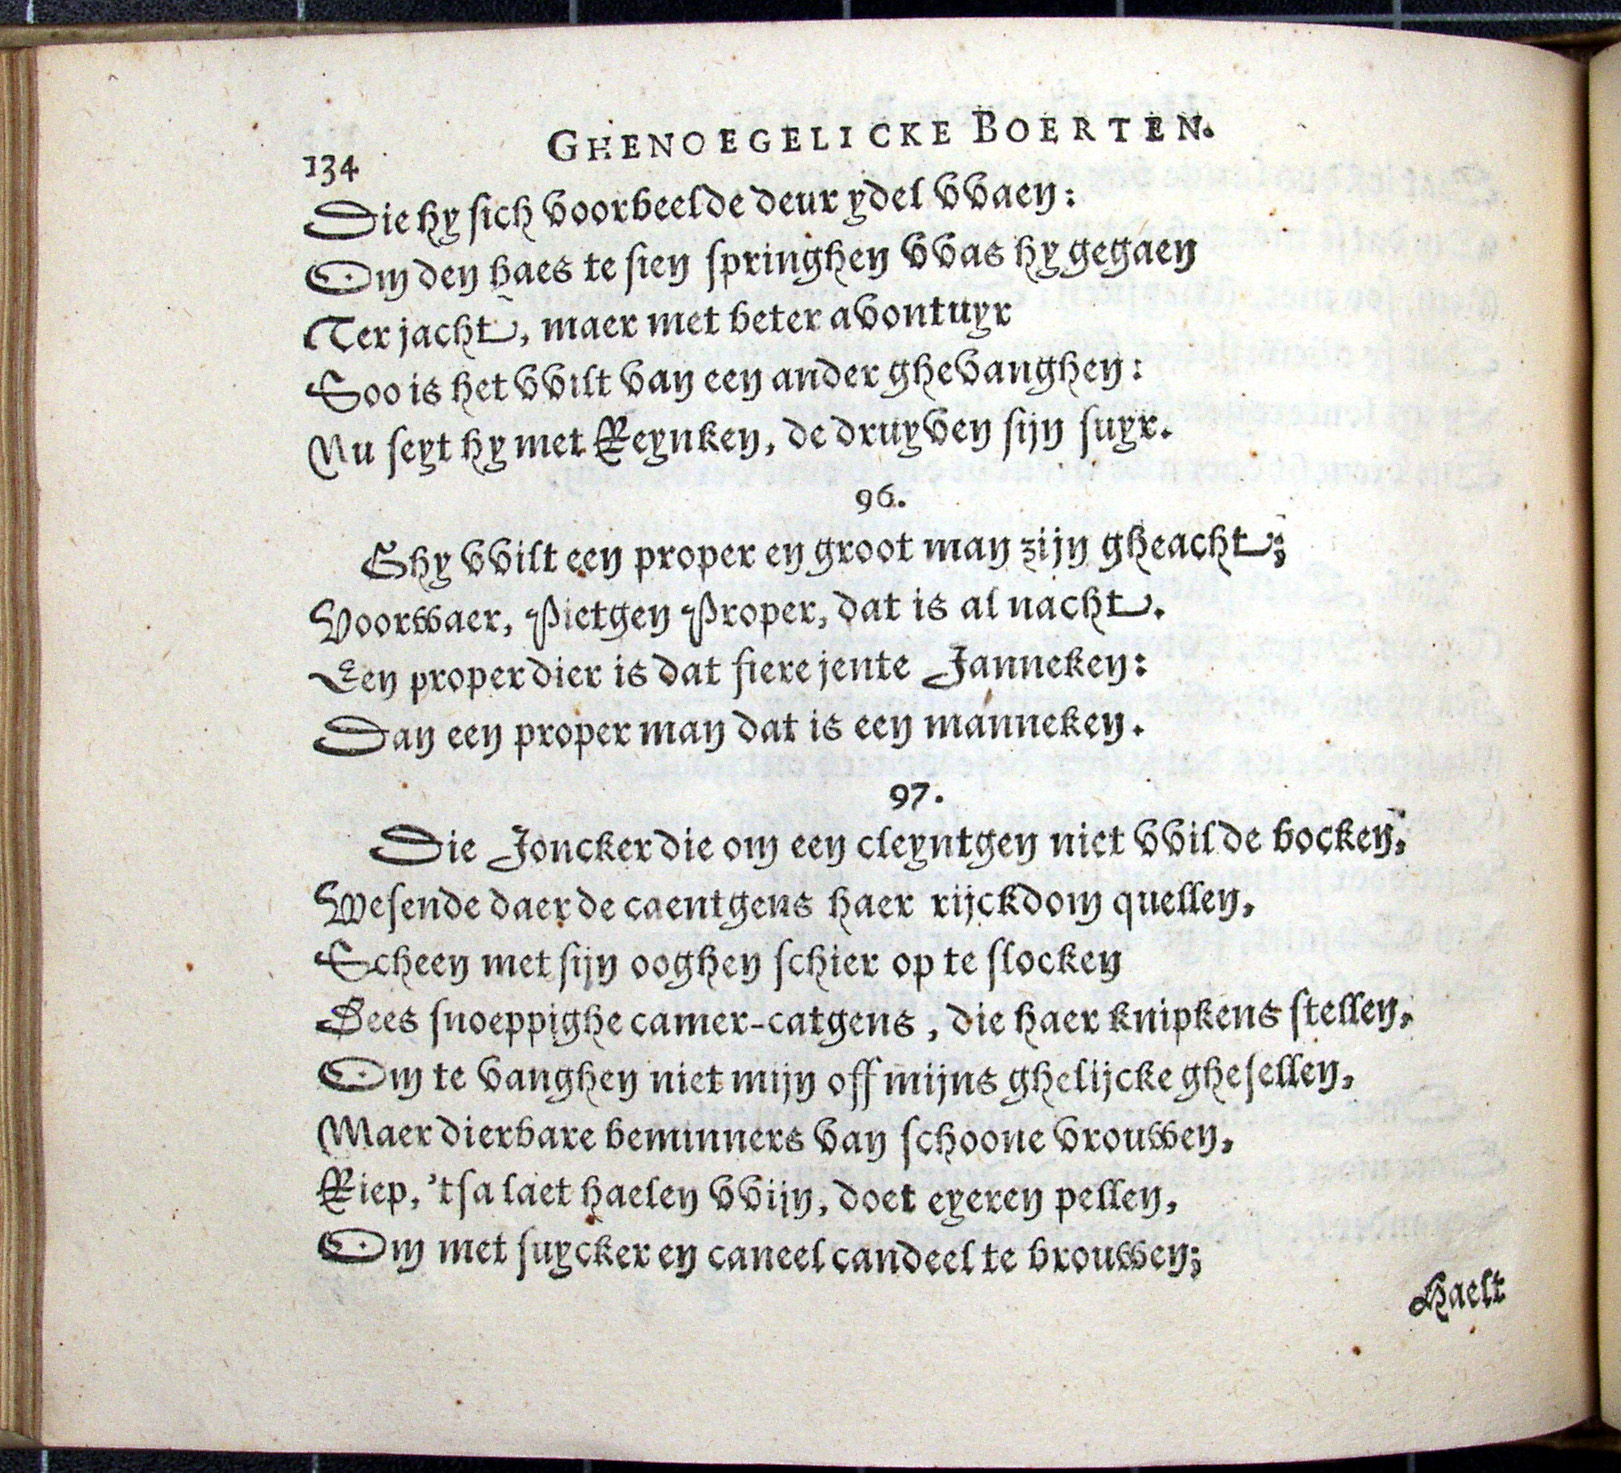 134 GHENOEGELICKE BOERTEN.
Die hy sich voorbeelde deur ydel vvaen:
Om den haes te sien springhen vvas hy gegaen
Ter jacht, maer met beter avontuyr
Soo is het vvilt van een ander ghevanghen:
Nu seyt hy met Reynken, de druyven sijn suyr.
96.
Ghy vvilt een proper en groot man zijn gheacht;
Voorwaer, Pietgen Proper, dat is al nacht.
Een proper dier is dat fiere jente Janneken:
Dan een proper man dat is een manneken.
97.
Die Joncker die om een cleyntgen niet vvilde bocken,
Wesende daer de caentgens haer rijckdom quellen,
Scheen met sijn ooghen schier op te slocken
Dees snoeppighe camer-catgens, die haer knipkens stellen,
Om te vanghen niet mijn off mijns ghelijcke ghesellen,
Maer dierbare beminners van schoone vrouwen,
Riep, 'tsa laet haelen vvijn, doet eyeren pellen,
Om met suycker en caneel candeel te brouwen;
Haelt